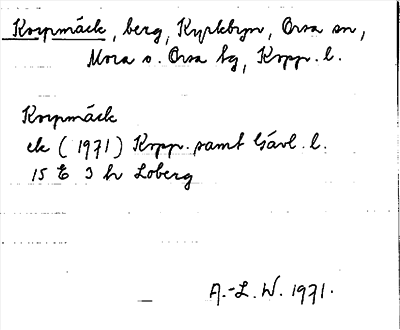 Korpmäck, berg, Kyrkbyn, Orsa sn,
Mora o. Orsa tg, Kopp. l.
Korpmäck
ek (1971) Kopp. samt Gävl. l.
15 E 3 h Loberg
A.-L. W. 1971.